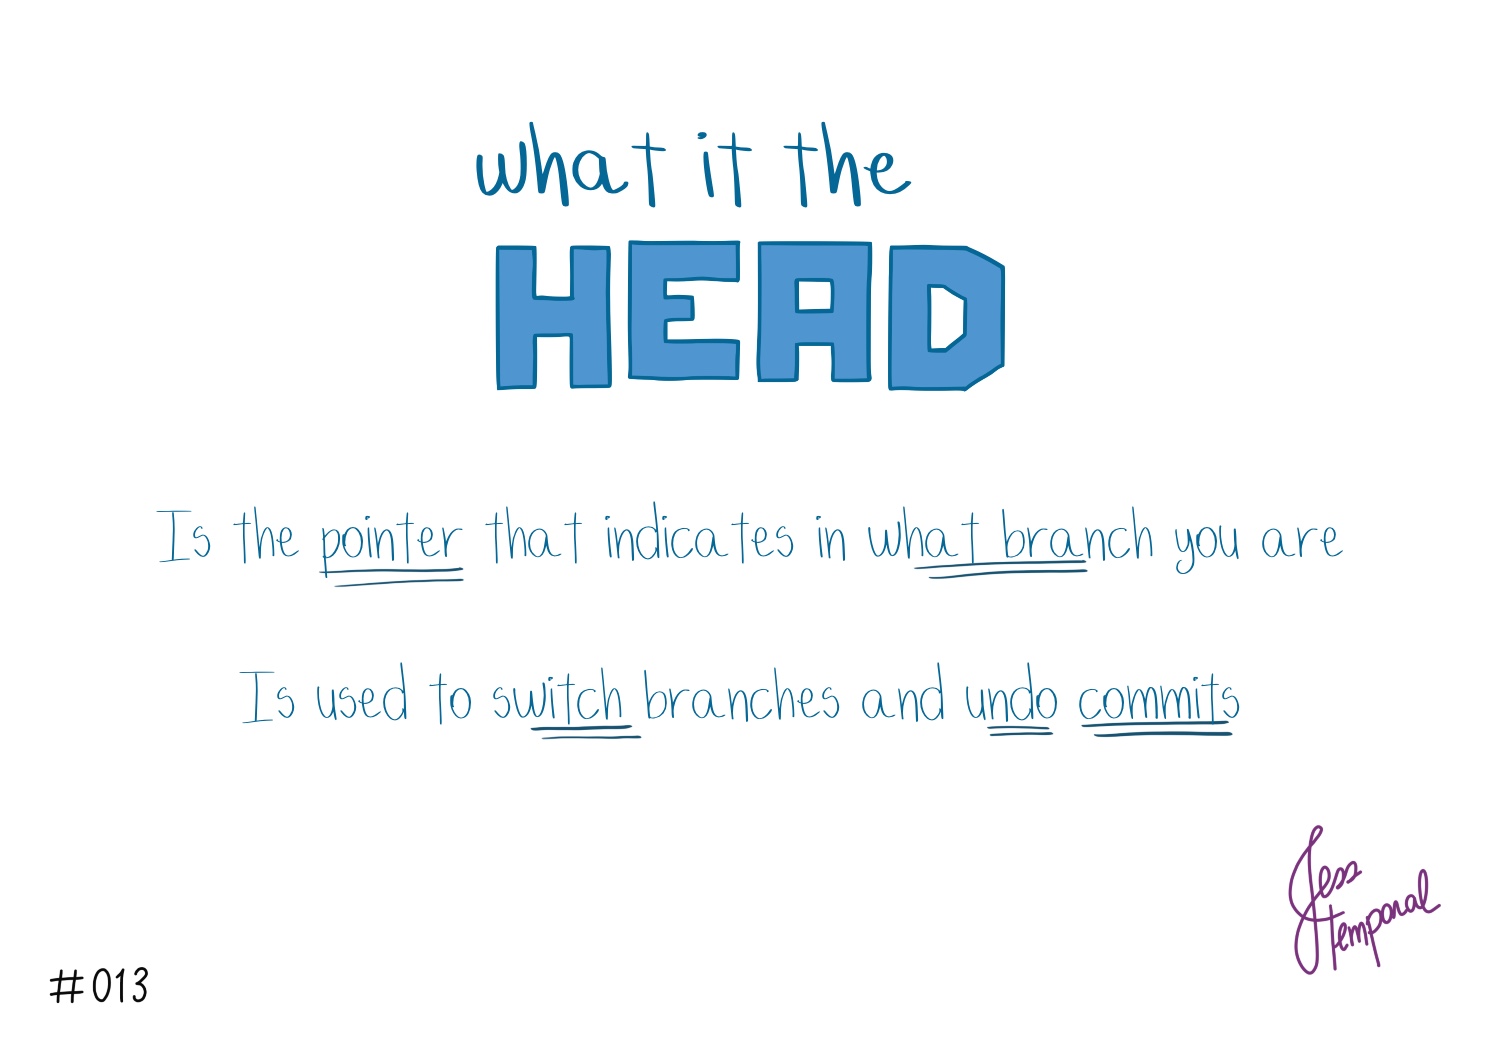 what it the
HEAD
Is the pointer that indicates in what branch you are
Is used to switch branches and undo commits
Jess
temporal
#013